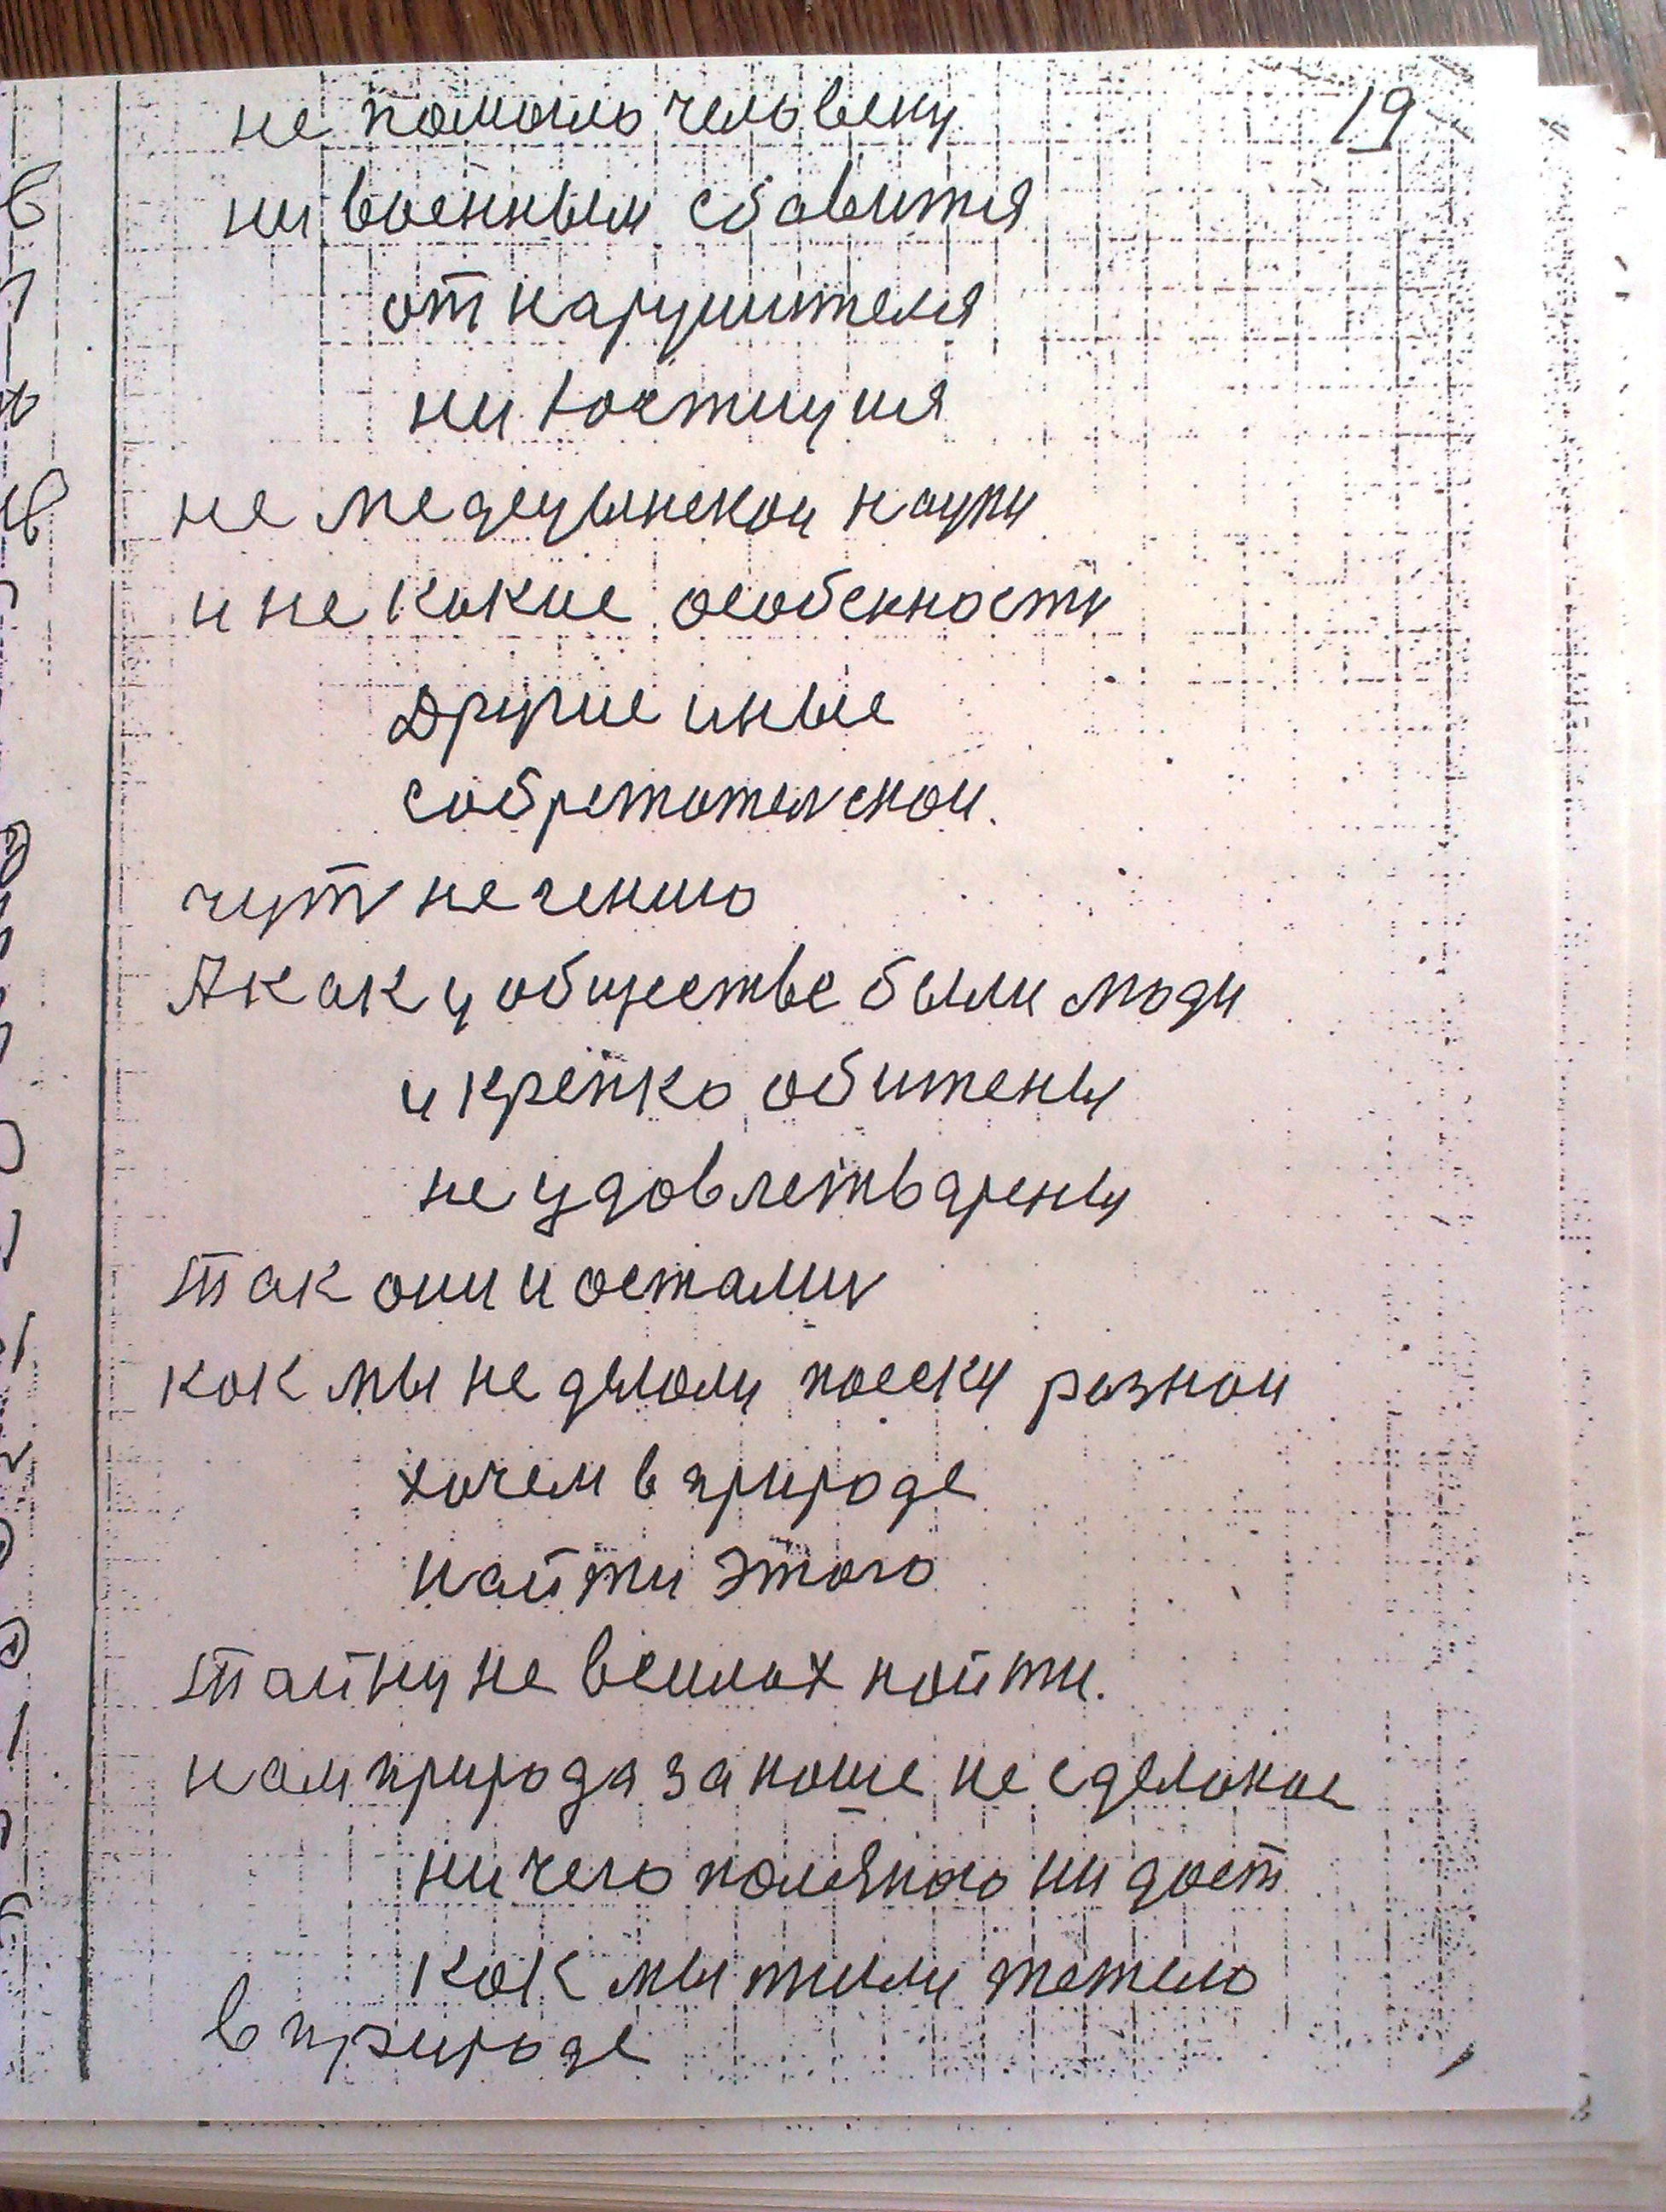 19
не помогло человеку
ни военным сбавится
от нарушителя
ни юстиция
не медецынской науки
и не какие особенности
другие иные
собретательской.
чуть не гению
А как у обществе были люди
и крепко обижены
не удовлетварены
так они и остались
как мы не делали поиски разной
хочем в природе
найти этого
тайну не в силах найти.
нам природа за наше не сделаное
ни чего полезного ни даст
как мы жили тежело
в природе